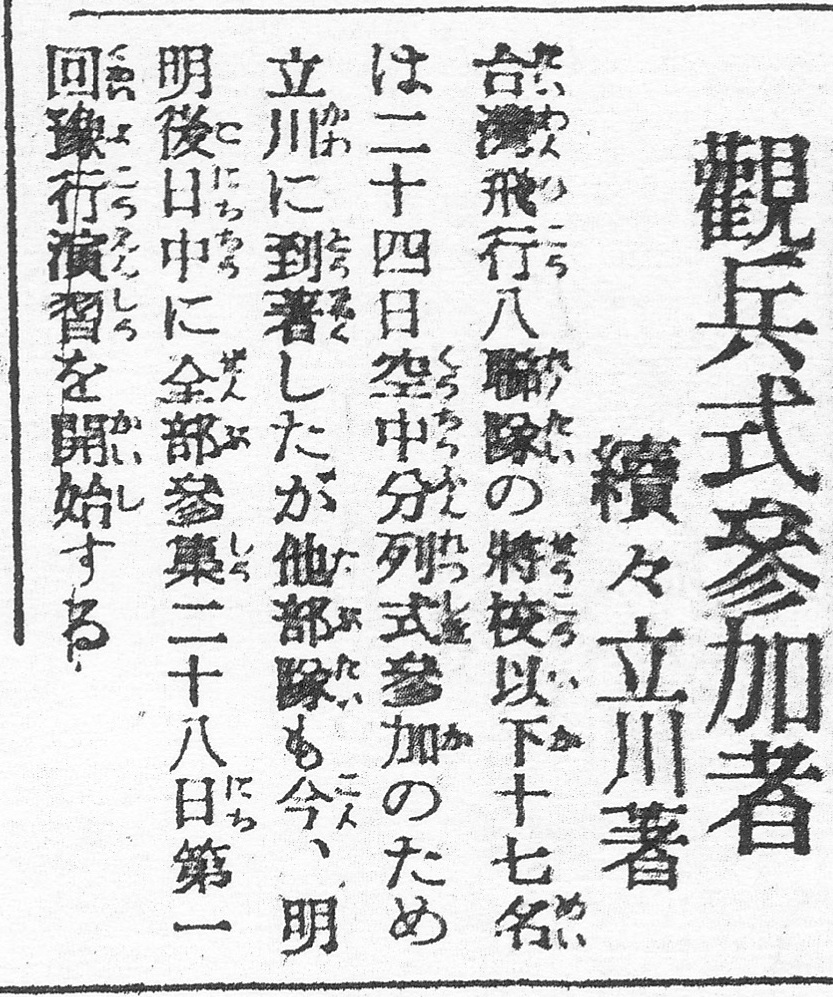 觀兵式參加者
續々立川著
台灣飛行八聯隊の將校以下十七名
は二十四日空中分列式參加のため
立川に到著したが他部隊も今、明
明後日中に全部參集二十八日第一
回豫行演習を開始する